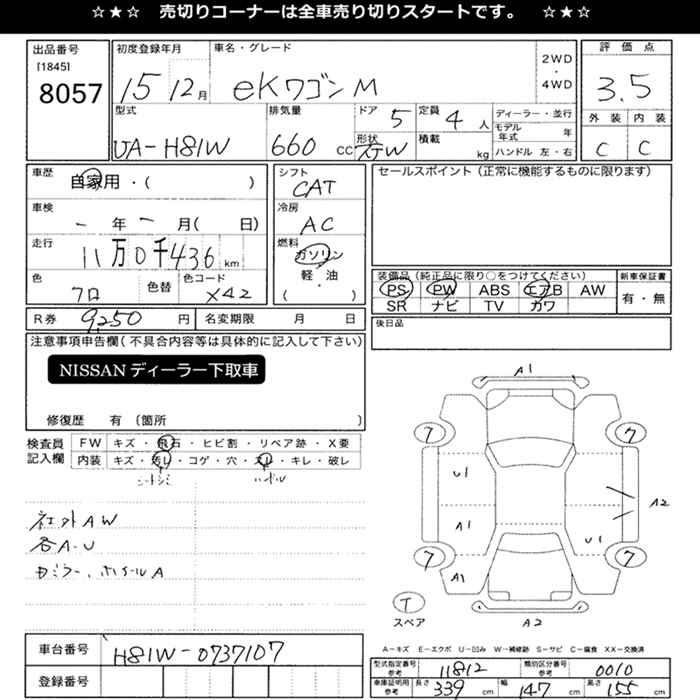 ☆★☆ 売切りコーナーは全車売り切りスタートです。 ☆★☆
出品番号
[1845]
8057
初度登録年月
15 12月
車名・グレード
eKワゴン M
2WD
・
4WD
評価点
3.5
外装 内装
C C
型式
UA-H81W
排気量
660 CC
ドア 5
形状
定員 4 人
積載 kg
ディーラー・並行
モデル年式 年
ハンドル 左・右
車歴
自家用・( )
車検
ー 年 ー 月( 日)
走行
11万0千436 km
色
クロ
色替
色コード
X42
シフト
CAT
冷房
AC
燃料
ガソリン
軽・油
( )
セールスポイント(正常に機能するものに限ります)
装備品(純正品に限り○をつけてください)
PS PW ABS エアB AW
SR ナビ TV カワ
新車保証書
有・無
R券 9,250 円
名変期限 月 日
後日品
注意事項申告欄(不具合内容等は具体的に記入して下さい)
NISSANディーラー下取車
修復歴 有(箇所 )
検査員記入欄
FW キズ・飛石・ヒビ割・リペア跡・X要
内装 キズ・汚レ・コゲ・穴・スレ・キレ・破レ
シートシミ ハンドル
社外AW
各A-U
ドミラー、ホイールA
A1
7 7
U1
A2
A1
U1
7 7
A1
T
スペア
A2
A-キズ E-エクボ U-凹み W-補修跡 S-サビ C-腐食 XX-交換済
車台番号
H81W-0737107
登録番号
型式指定番号 参考 11812
類別区分番号 参考 0010
車庫証明用 参考 長さ 339 cm 幅 147 cm 高さ 155 cm